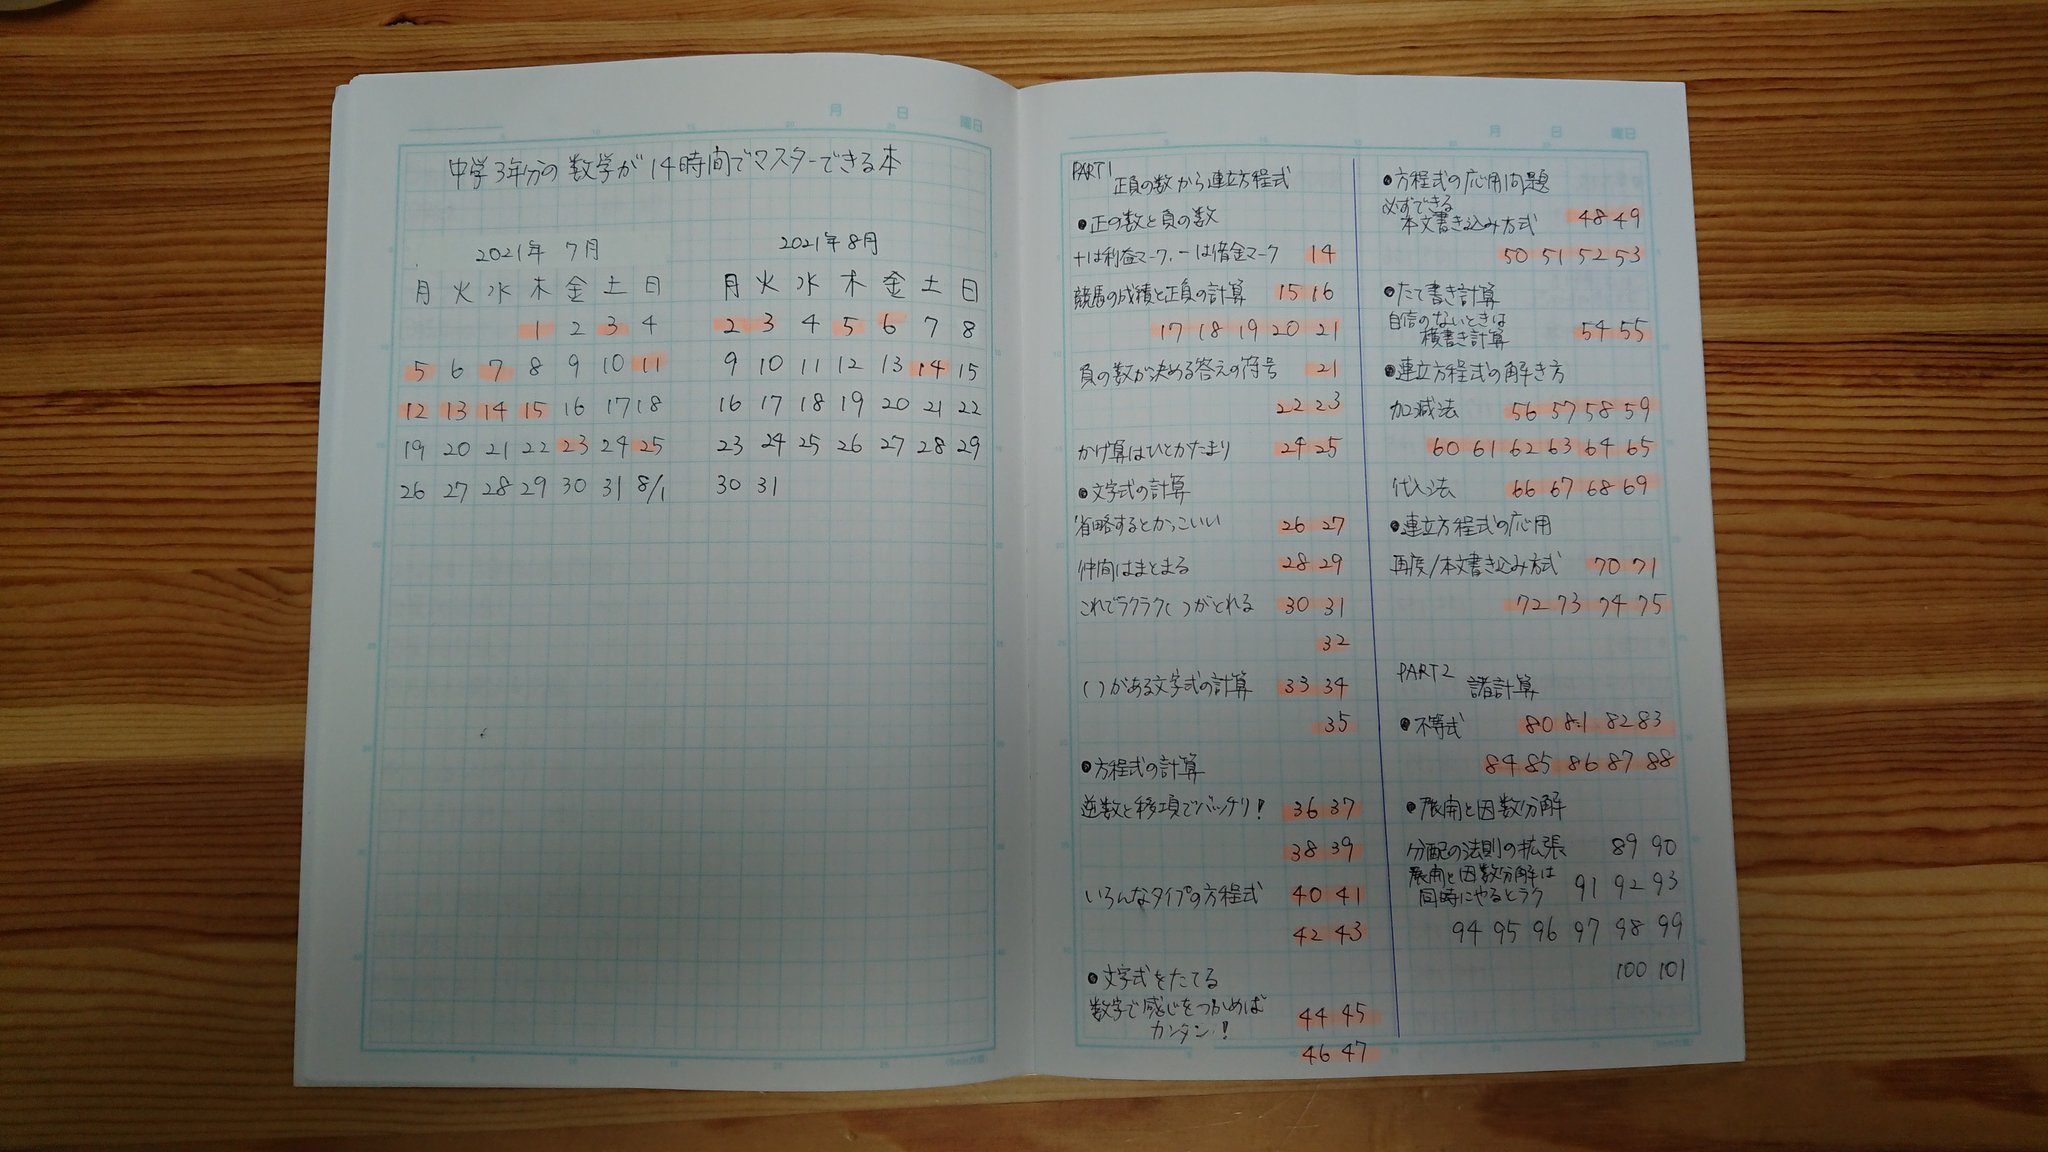 月 日 曜日
中学3年分の数学が14時間でマスターできる本
2021年 7月
月 火 水 木 金 土 日
1 2 3 4
5 6 7 8 9 10 11
12 13 14 15 16 17 18
19 20 21 22 23 24 25
26 27 28 29 30 31 8/1
2021年8月
月 火 水 木 金 土 日
2 3 4 5 6 7 8
9 10 11 12 13 14 15
16 17 18 19 20 21 22
23 24 25 26 27 28 29
30 31
月 日 曜日
PART1
正負の数から連立方程式
●正の数と負の数
+は利益マーク、-は借金マーク 14
競馬の成績と正負の計算 15 16
17 18 19 20 21
負の数が決める答えの符号 21
22 23
かけ算はひとかたまり 24 25
●文字式の計算
省略するとかっこいい 26 27
仲間はまとまる 28 29
これでラクラク( )がとれる 30 31
32
( )がある文字式の計算 33 34
35
●方程式の計算
逆数と移項でバッチリ! 36 37
38 39
いろんなタイプの方程式 40 41
42 43
●文字式をたてる
数字で感じをつかめば
カンタン! 44 45
46 47
●方程式の応用問題
必ずできる
本文書き込み方式 48 49
50 51 52 53
●たて書き計算
自信のないときは
横書き計算 54 55
●連立方程式の解き方
加減法 56 57 58 59
60 61 62 63 64 65
代入法 66 67 68 69
●連立方程式の応用
再度/本文書き込み方式 70 71
72 73 74 75
PART2
諸計算
●不等式 80 81 82 83
84 85 86 87 88
●展開と因数分解
分配の法則の拡張 89 90
展開と因数分解は
同時にやるとラク 91 92 93
94 95 96 97 98 99
100 101